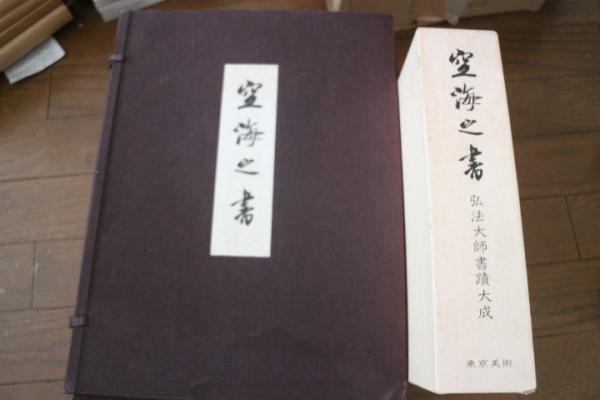 空海之書
空海之書
弘法大師書蹟大成
東京美術